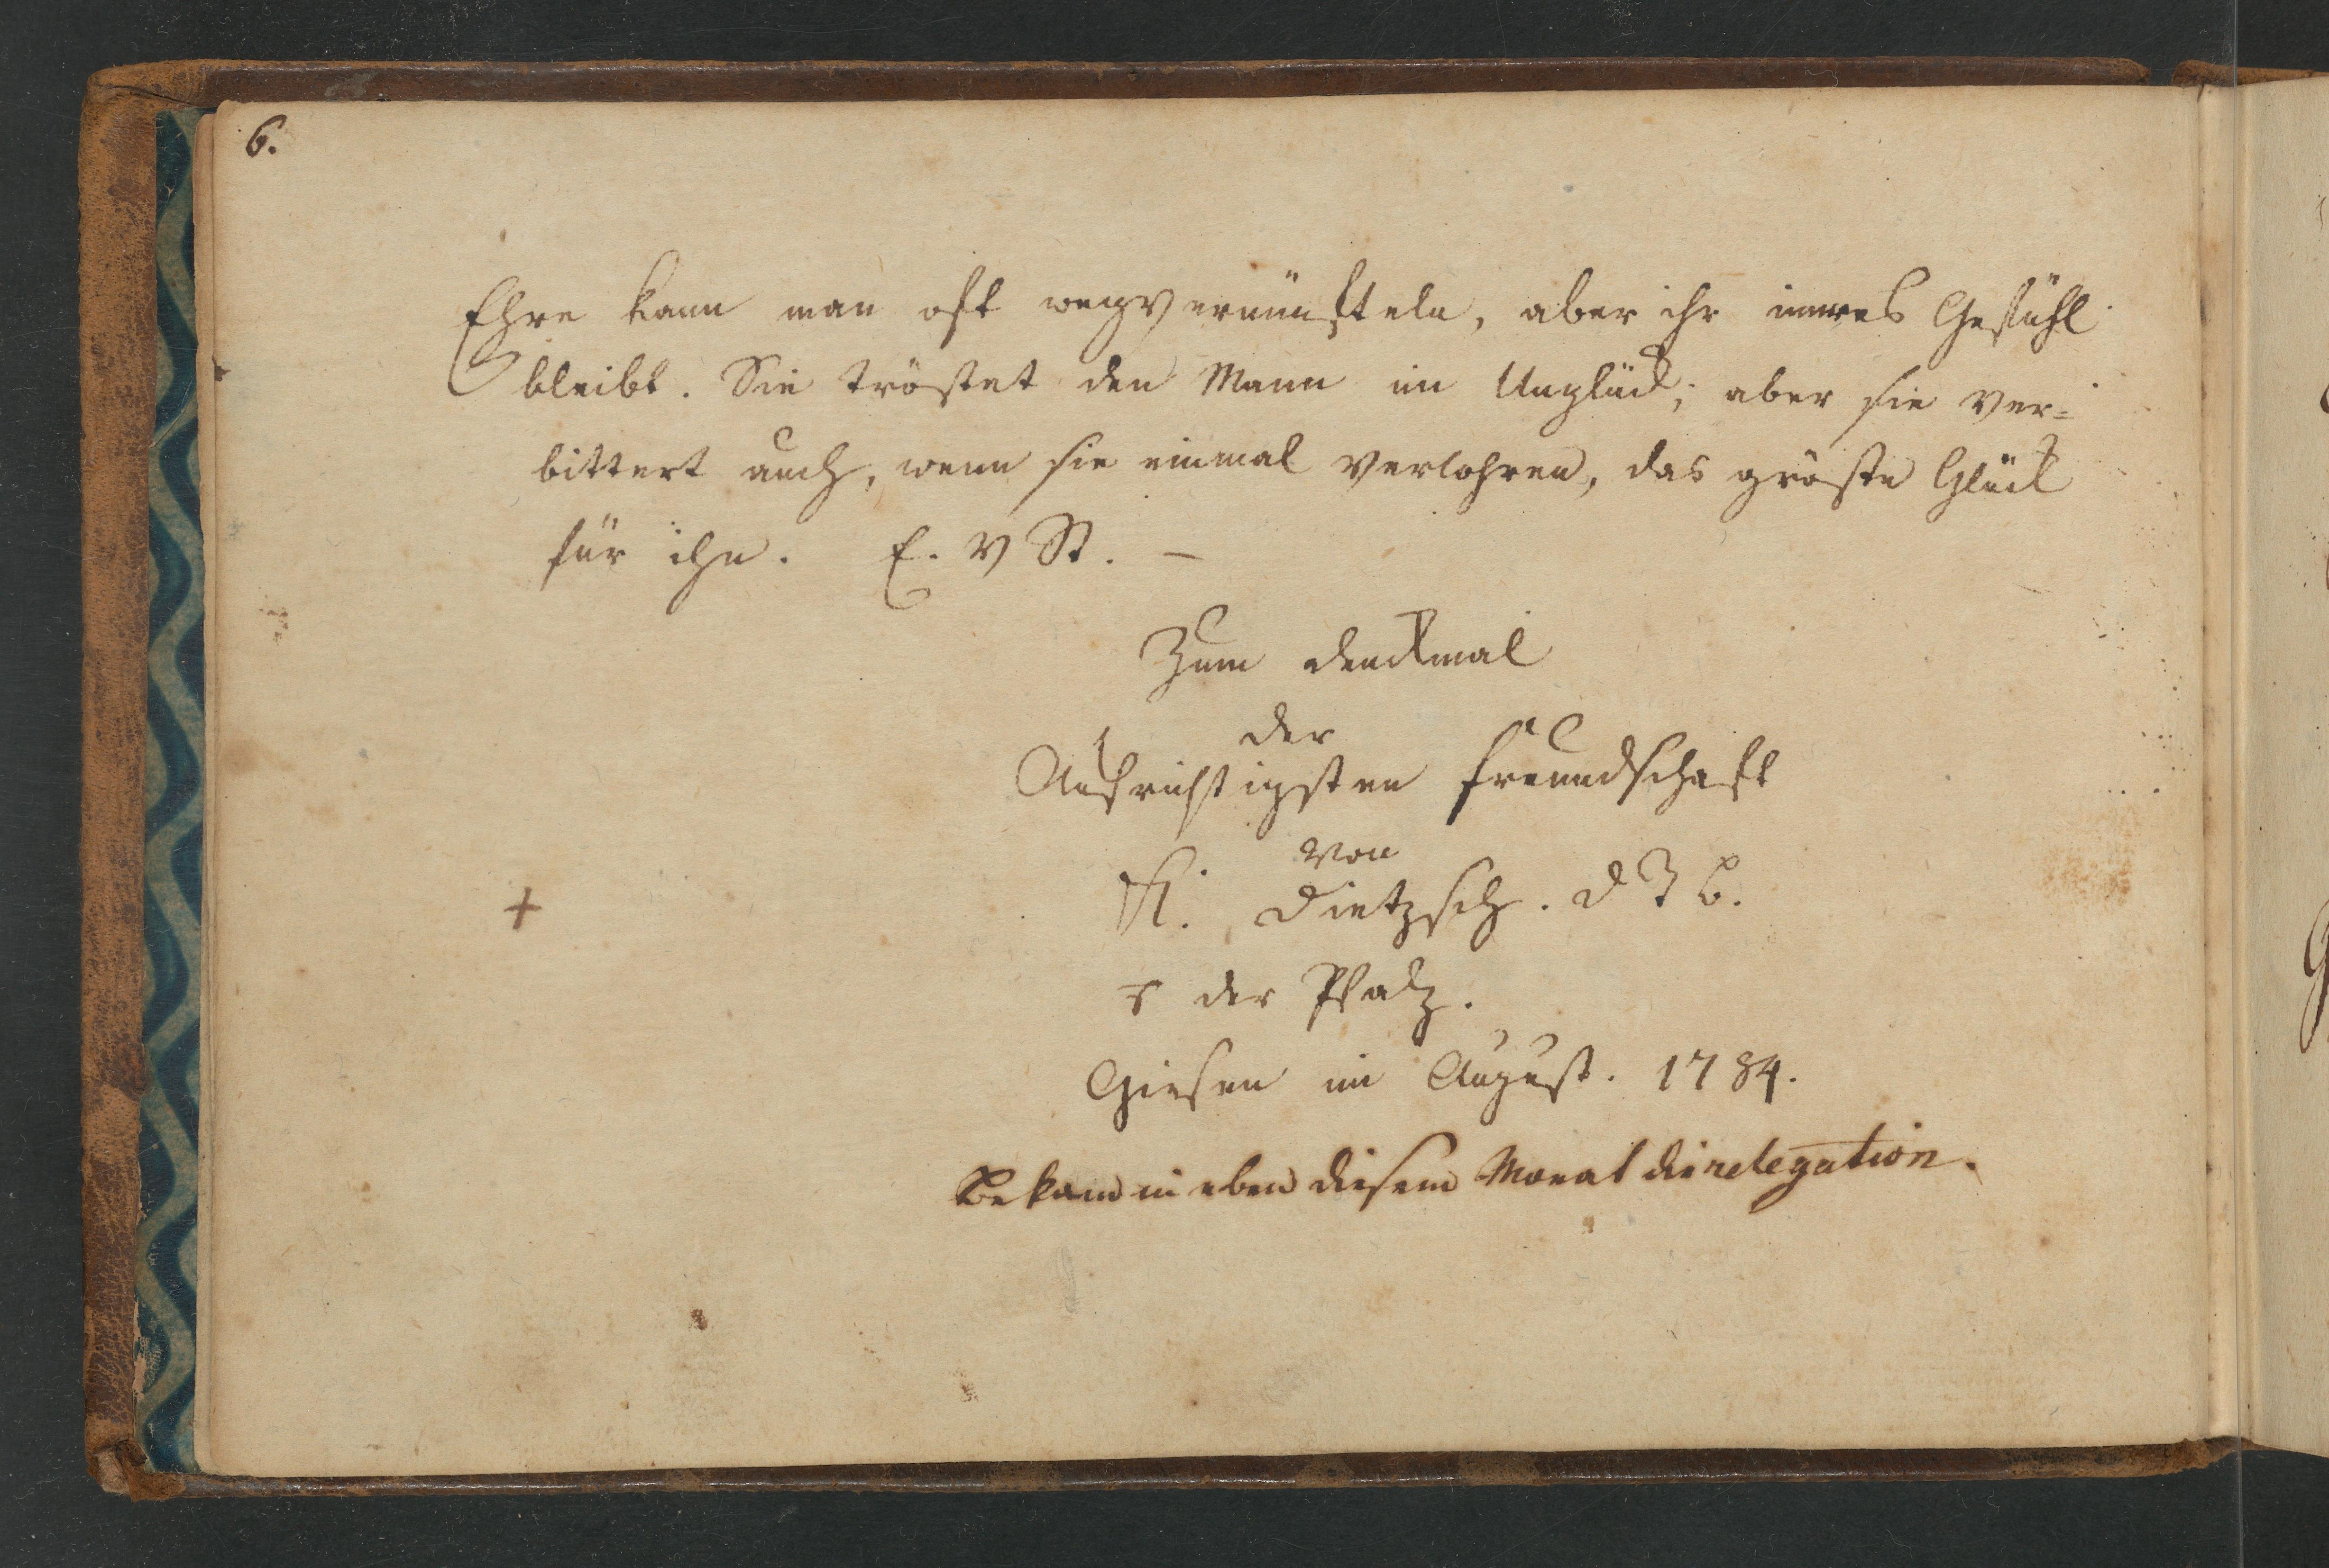 6.
Ehre kann man oft wegvernünfteln, aber ihr inneres Gefühl
bleibt. Sie tröstet den Mann im Unglück; aber sie ver=
bittert auch, wenn sie einmal verlohren, das gröste Glück
für ihn. E. v St. —
Zum denckmal
der
Aufrichtigsten freundschaft
von
Dietzsch. d
der Pfalz.
Giesen im August. 1784.
Bekam in eben diesem Monat die relegation.
+